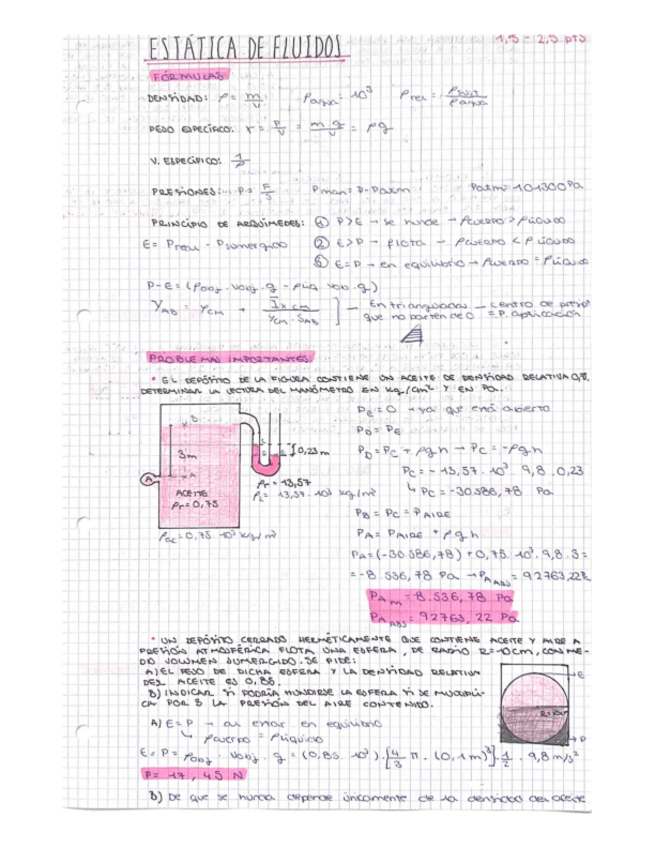 ESTÁTICA DE FLUIDOS
1,5 - 2,5 pts
FÓRMULAS
DENSIDAD: ρ = m/V   ρagua = 10³   ρrel = /ρagua
PESO ESPECÍFICO: γ = P/V = m·g/V = ρg
V. ESPECÍFICO: 1/ρ
PRESIONES: P = F/S   Pman = P - Patm   Patm = 101300 Pa
PRINCIPIO DE ARQUÍMEDES: ① P>E → se hunde → ρcuerpo > ρlíquido
E = Preal - Psumergido   ② E>P → flota → ρcuerpo < ρlíquido
③ E=P → en equilibrio → ρcuerpo = ρlíquido
P-E = (ρobj · Vobj · g - ρliq · Vobj · g)
YAB = YCM + IxCM / YCM · SAB ] — En triángulos — centro de
que no parten de 0 = P. aplicación
PROBLEMAS IMPORTANTES:
* EL DEPÓSITO DE LA FIGURA CONTIENE UN ACEITE DE DENSIDAD RELATIVA
DETERMINAR LA LECTURA DEL MANÓMETRO EN Kg/cm² Y EN Pa.
PE = 0 → ya que está abierto
PD = PE
PD = PC + ρgh → PC = -ρgh
PC = - 13,57 · 10³ · 9,8 · 0,23
↳ PC = -30.586,78 Pa
PB = PC = PAIRE
PA = PAIRE + ρgh
PA = (-30.586,78) + 0,75 · 10³ · 9,8 · 3 =
= -8.536,78 Pa → PA ABS = 92763,22
PA m = -8.536,78 Pa
PA ABS = 92763,22 Pa
B
3m
A
A
ACEITE
ρr = 0,75
ρac = 0,75 · 10³ kg/m³
0,23 m
ρr = 13,57
ρL = 13,57 · 10³ kg/m³
* UN DEPÓSITO CERRADO HERMÉTICAMENTE QUE CONTIENE ACEITE Y AIRE A
PRESIÓN ATMOSFÉRICA FLOTA UNA ESFERA, DE RADIO R=10cm, CON ME-
DIO VOLUMEN SUMERGIDO. SE PIDE:
A) EL PESO DE DICHA ESFERA Y LA DENSIDAD RELATIVA
DEL ACEITE ES 0,85.
B) INDICAR SI PODRÍA HUNDIRSE LA ESFERA SI SE MULTIPLI-
CA POR 5 LA PRESIÓN DEL AIRE CONTENIDO.
E
R=10cm
P
A) E = P → al estar en equilibrio
↳ ρcuerpo = ρlíquido
E = P = ρobj · Vobj · g = (0,85 · 10³) · [4/3 π · (0,1m)³] · 1/2 · 9,8 m/s²
P = 17,45 N
B) De que se hunda depende únicamente de la densidad del aceite